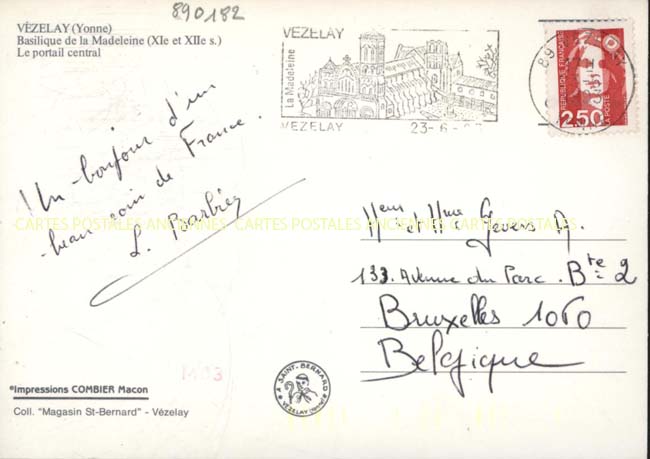 890182
VÉZELAY (Yonne)
Basilique de la Madeleine (XIe et XIIe s.)
Le portail central
La Madeleine
VEZELAY
VEZELAY 23-6-
89
REPUBLIQUE FRANÇAISE
LA POSTE
2,50
Un bonjour d'un
beau coin de France.
L. Barbiez
CARTES POSTALES ANCIENNES CARTES POSTALES ANCIENNES CARTES POSTALES ANCIENNES
Mr et Mme Gevers A.
133. Avenue du Parc. Bte 2
Bruxelles 1060
Belgique
1403
*Impressions COMBIER Macon
Coll. "Magasin St-Bernard" - Vézelay
A SAINT-BERNARD
VEZELAY (Yonne)